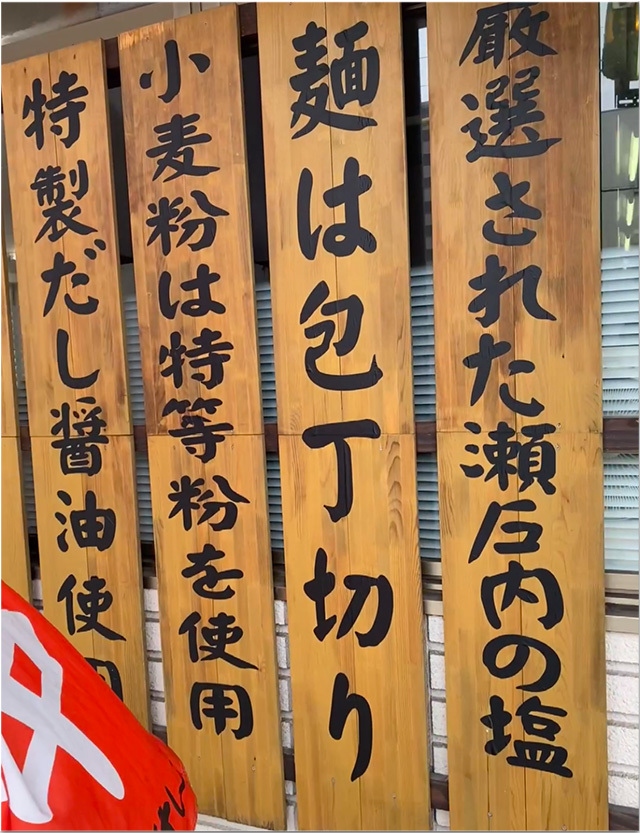 厳選された瀬戸内の塩
麺は包丁切り
小麦粉は特等粉を使用
特製だし醤油使用